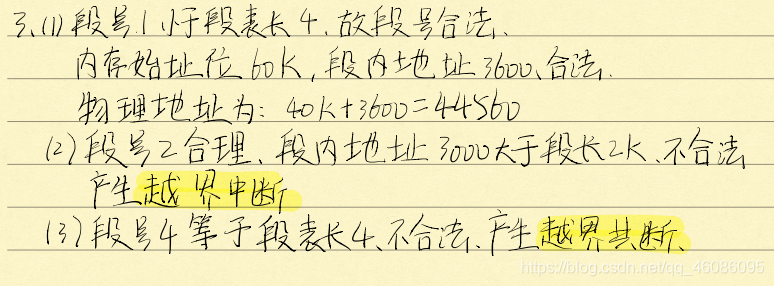 3.(1)段号1小于段表长4,故段号合法.
内存始址位60K,段内地址3600、合法.
物理地址为:40K+3600=44560
(2)段号2合理、段内地址3000大于段长2K、不合法
产生越界中断
(3)段号4等于段表长4、不合法、产生越界共断、
https://blog.csdn.net/qq_46086095